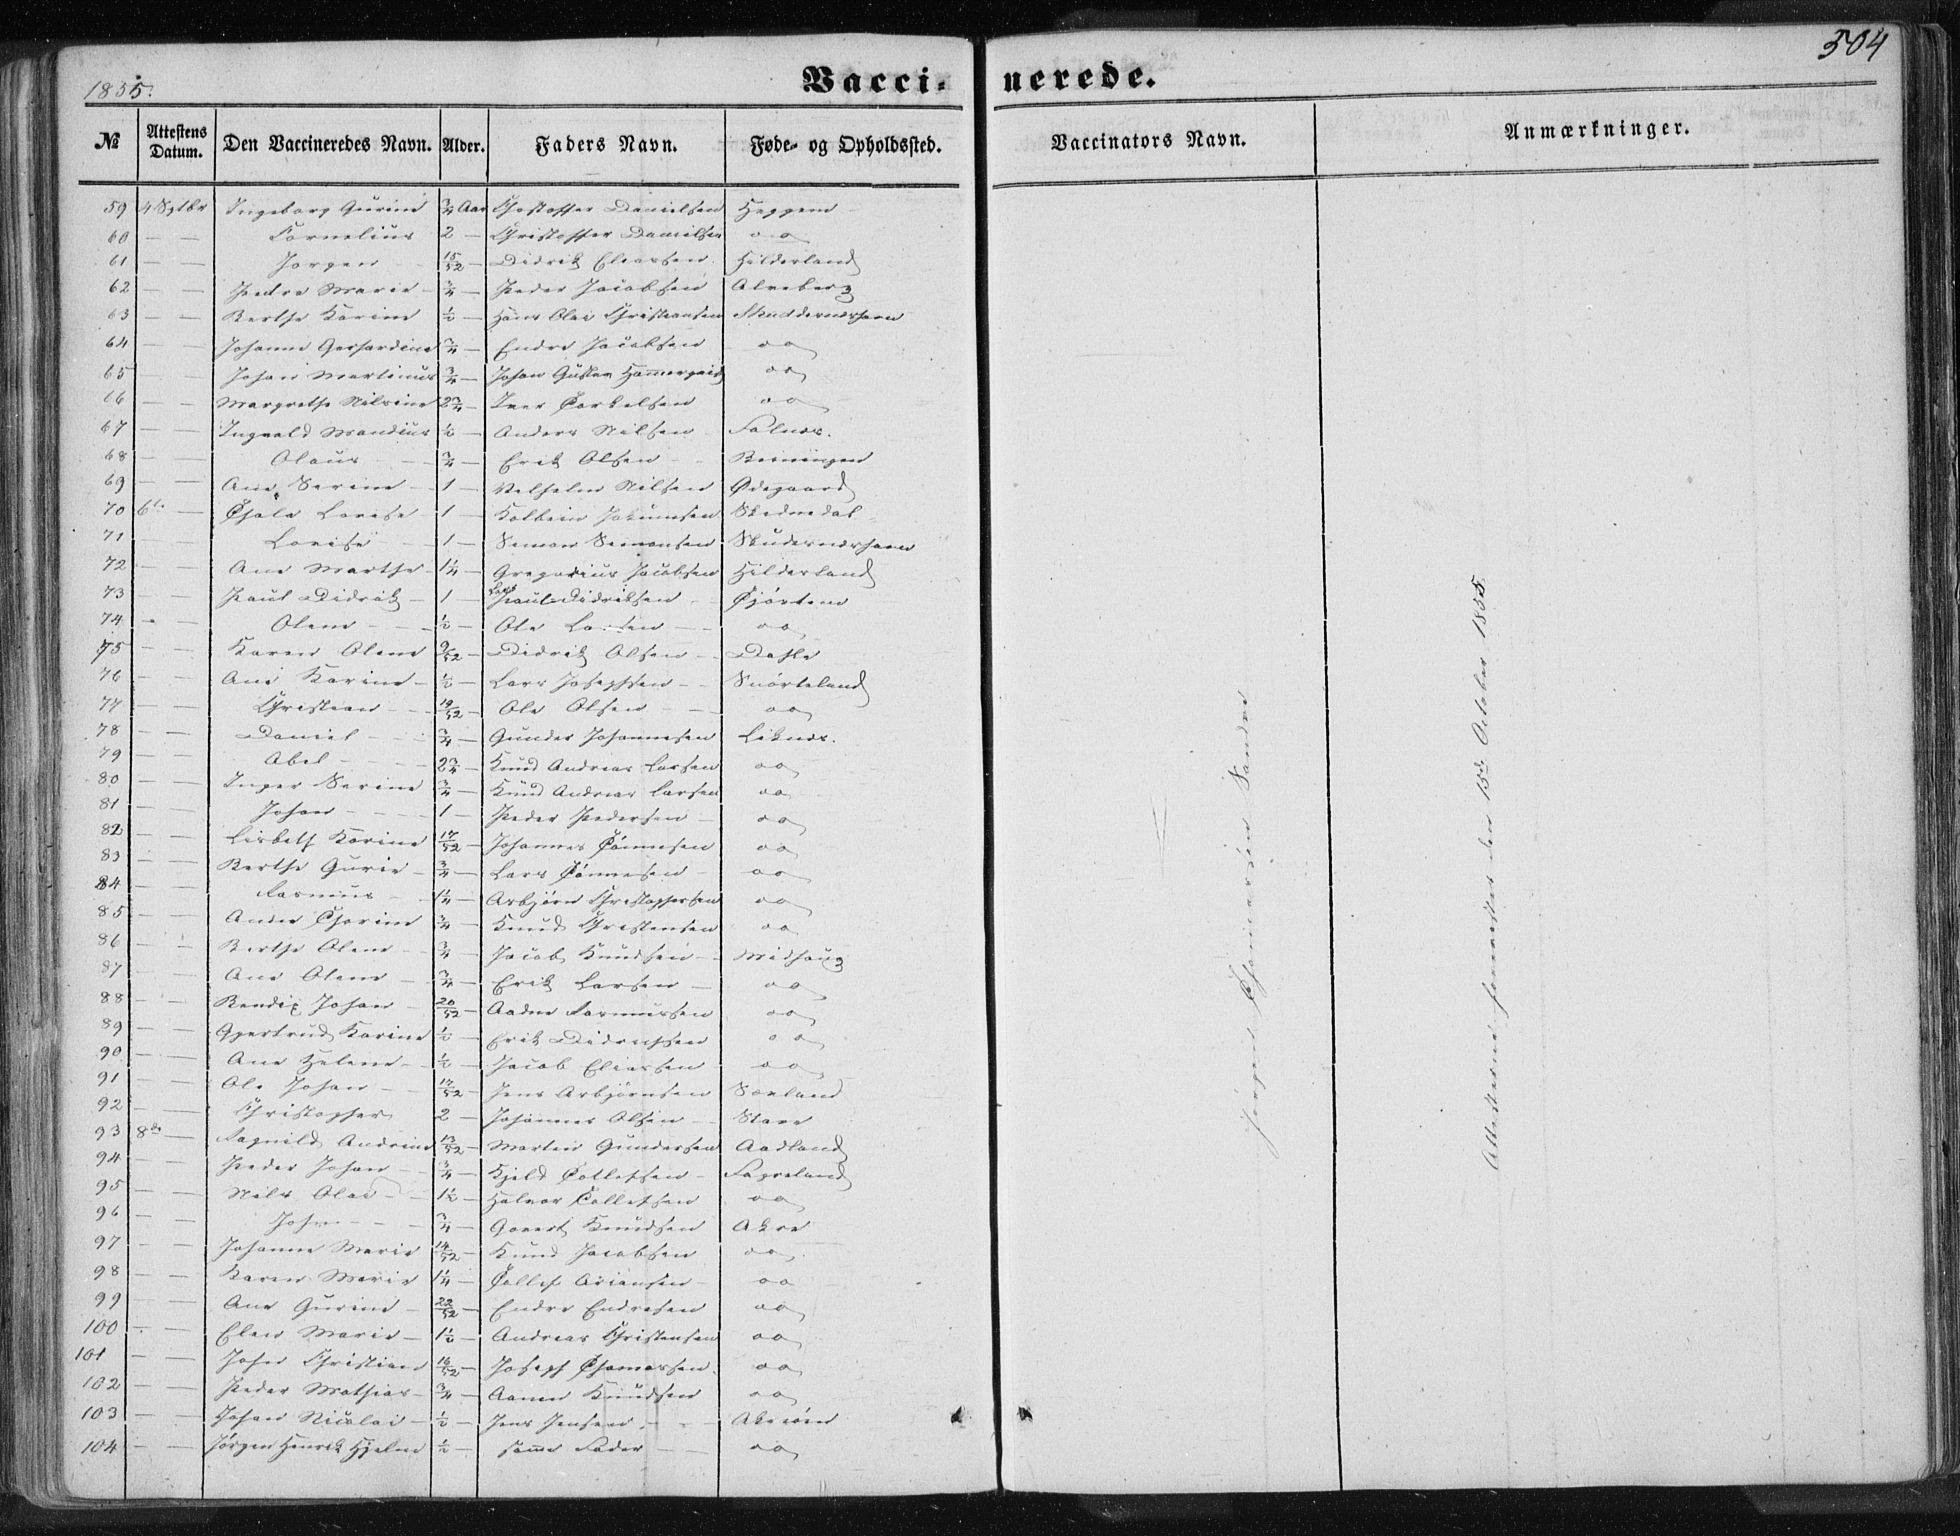 504
1855.
Vacci- nerede.
№ Attestens Datum. Den Vaccineredes Navn. Alder. Faders Navn. Føde- og Opholdssted. Vaccinators Navn. Anmærkninger.
59 4 Sptbr Ingeborg Gurine 3/4 Aar Christoffer Danielsen Heggem
60 — — Cornelius 2 — Christoffer Danielsen oo
61 — — Jørgen 15/52 — Didrik Eliassen Hilderland
62 — — Pedre Marie 3/4 — Peder Jacobsen Alveberg
63 — — Berthe Karine 1/2 — Hans Olai Christiansen Skuddesnæshavn
64 — — Johanne Gerhardine 3/4 — Endre Jacobsen oo
65 — — Johan Martinus 3/4 — Johan Gustav oo
66 — — Margrethe Nilsine 2 3/4 — Iver Torkelsen oo
67 — — Ingvald Mandius 1/2 — Anders Nilsen Falnæs.
68 — — Olaus 3/4 — Erik Olsen
69 — — Ane Serine 1 — Velhelm Nilsen Ødegaard
70 6te — Thale Lovise 1 — Kolbein
71 — — Lovise 1 — Simon Simonsen Skudesnæshavn
72 — — Ane Marthe 1 1/4 — Gregorius Jacobsen Hilderland
73 — — Paul Didrik 1 — Lars Paul Didriksen
74 — — Olene 1/2 — Ole Larsen oo
75 — — Karen Olene 9/52 — Didrik Olsen Dahle
76 — — Ane Karine 1/2 — Lars Josephsen Snørteland
77 — — Christian 19/52 — Ole Olsen oo
78 — — Daniel 3/4 — Gunder Johannesen Liknæs.
79 — — Abel 2 3/4 — Knud Andreas Larsen oo
80 — — Inger Serine 3/4 — Knud Andreas Larsen oo
81 — — Johan 1 — Peder Pedersen oo
82 — — Lisbeth Karine 17/52 — Johannes Tønnesen oo
83 — — Berthe Gurie 3/4 — Lars Tønnesen oo
84 — — Rasmus 1 1/4 — Asbjørn Christophersen oo
85 — — Andre Thorine 3/4 — Knud Christensen oo
86 — — Berthe Olene 3/4 — Jacob Knudsen Midhaug
87 — — Ane Olene 3/4 — Erik Larsen oo
88 — — Bendix Johan 20/52 — Aadne Rasmussen oo
89 — — Gjertrud Karine 1/2 — Erik Didriksen oo
90 — — Ane Helene 1/2 — Jacob Eliassen oo
91 — — Ole Johan 17/52 — Jens Asbjørnsen Sævland
92 — — Christopher 2 — Johannes Olsen Stave
93 8de — Ragnild Andrine 13/52 — Morten Gundersen Aadland
94 — — Peder Johan 3/4 — Kjeld Tollefsen Fagreland
95 — — Nils Olai 1 1/2 — Halvor Tollefsen oo
96 — — John 3/4 — Govert Knudsen Akre
97 — — Johanne Marie 14/52 — Knud Jacobsen oo
98 — — Karen Marie 1 1/4 — Tollef Ariansen oo
99 — — Ane Gurine 22/52 — Endre Endresen oo
100 — — Elen Marie 1 1/2 — Andreas Christensen oo
101 — — John Christian 16/52 — Joseph Thomassen oo
102 — — Peder Mathias 3/4 — Aanen Knudsen oo
103 — — Johan Nicolai 1/2 — Jens Jensen Akreøen
104 — — Jørgen Henrik Hjelm 1/2 — samme Fader oo
Jørgen Thomassen Sandve
Attesterne fremviste den 15de October 1855